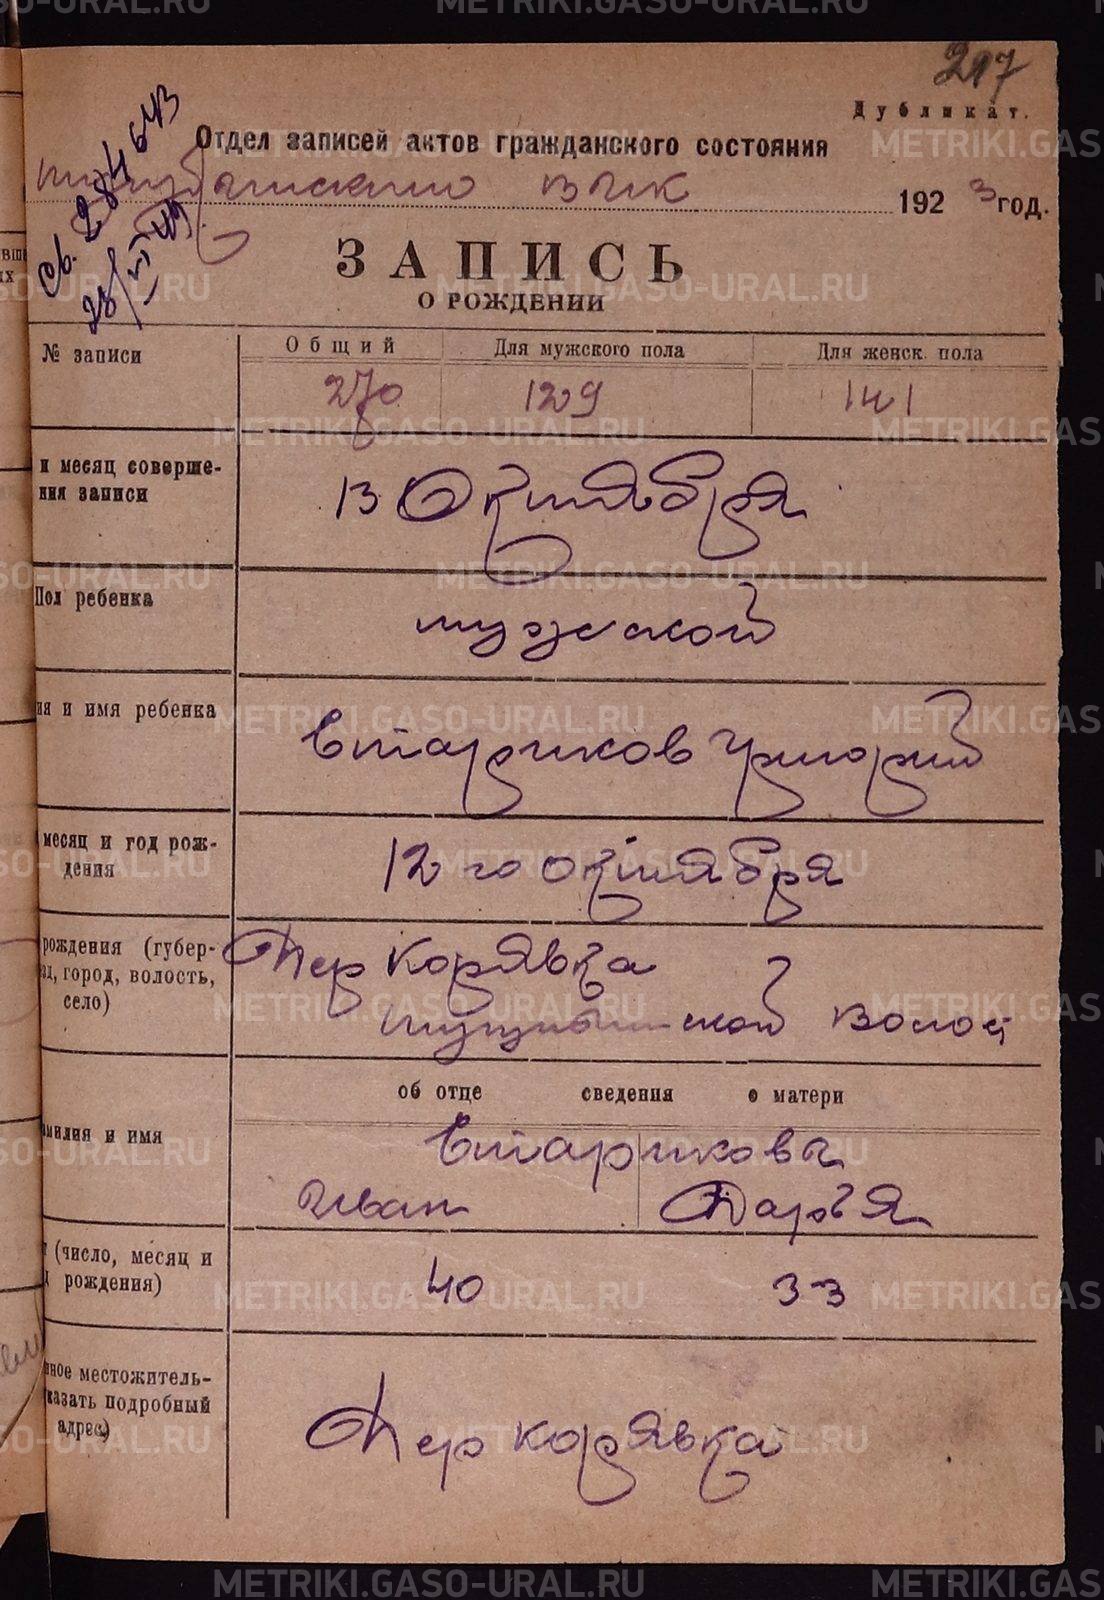 217
Дубликат.
Отдел записей актов гражданского состояния
ВИК 1923 год.
Св. 284643
ЗАПИСЬ
О РОЖДЕНИИ
№ записи
Общий Для мужского пола Для женск. пола
270 129 141
и месяц соверше-
ния записи
13 Октября
Пол ребенка
мужской
ия и имя ребенка
Стариков Григорий
месяц и год рож-
дения
12 го октября
рождения (губер-
зд, город, волость,
село)
Дер Корявка
ской волос
об отце сведения о матери
амилия и имя
Стариковы
Иван Дарья
т (число, месяц и
рождения)
40 33
нное местожитель-
казать подробный
адрес)
Дер Корявка
METRIKI.GASO-URAL.RU